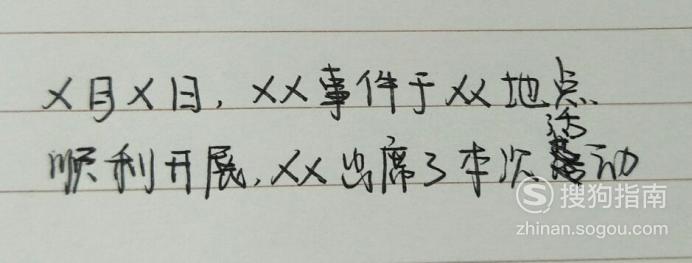 X月X日，XX事件于XX地点
顺利开展，XX出席了本次活动
搜狗指南
zhinan.sogou.com